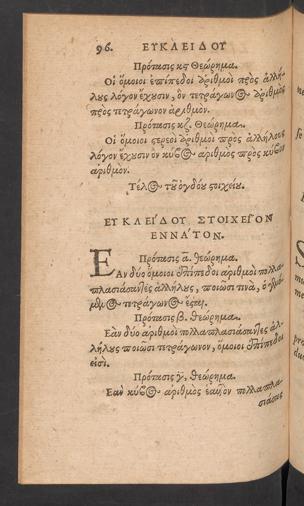 96. ΕΥΚΛΕΙΔΟΥ
Πρότασις κϛ Θεώρημα.
Οἱ ὅμοιοι ἐπίπεδοι ἀριθμοὶ πρὸς ἀλλή-
λους λόγον ἔχουσιν, ὃν τετράγωνος ἀριθμὸς
πρὸς τετράγωνον ἀριθμόν.
Πρότασις κζ. Θεώρημα.
Οἱ ὅμοιοι στερεοὶ ἀριθμοὶ πρὸς ἀλλήλους
λόγον ἔχουσιν ὃν κύβος ἀριθμὸς πρὸς κύβον
ἀριθμόν.
Τέλος τοῦ ὀγδόου στοιχείου.
ΕΥΚΛΕΊΔΟΥ ΣΤΟΙΧΕΙ͂ΟΝ
ΕΝΝΆΤΟΝ.
Πρότασις α. θεώρημα.
Ἐὰν δύο ὅμοιοι ἐπίπεδοι ἀριθμοὶ πολλα-
πλασιάσαντες ἀλλήλους, ποιῶσι τινὰ, ὁ γενό-
μενος τετράγωνος ἔσται.
Πρότασις β. θεώρημα.
Ἐὰν δύο ἀριθμοὶ πολλαπλασιάσαντες ἀλ-
λήλους ποιῶσι τετράγωνον, ὅμοιοι ἐπίπεδοι
εἰσί.
Πρότασις γ. θεώρημα.
Ἐὰν κύβος ἀριθμὸς ἑαυτὸν πολλαπλα-
σιάσας